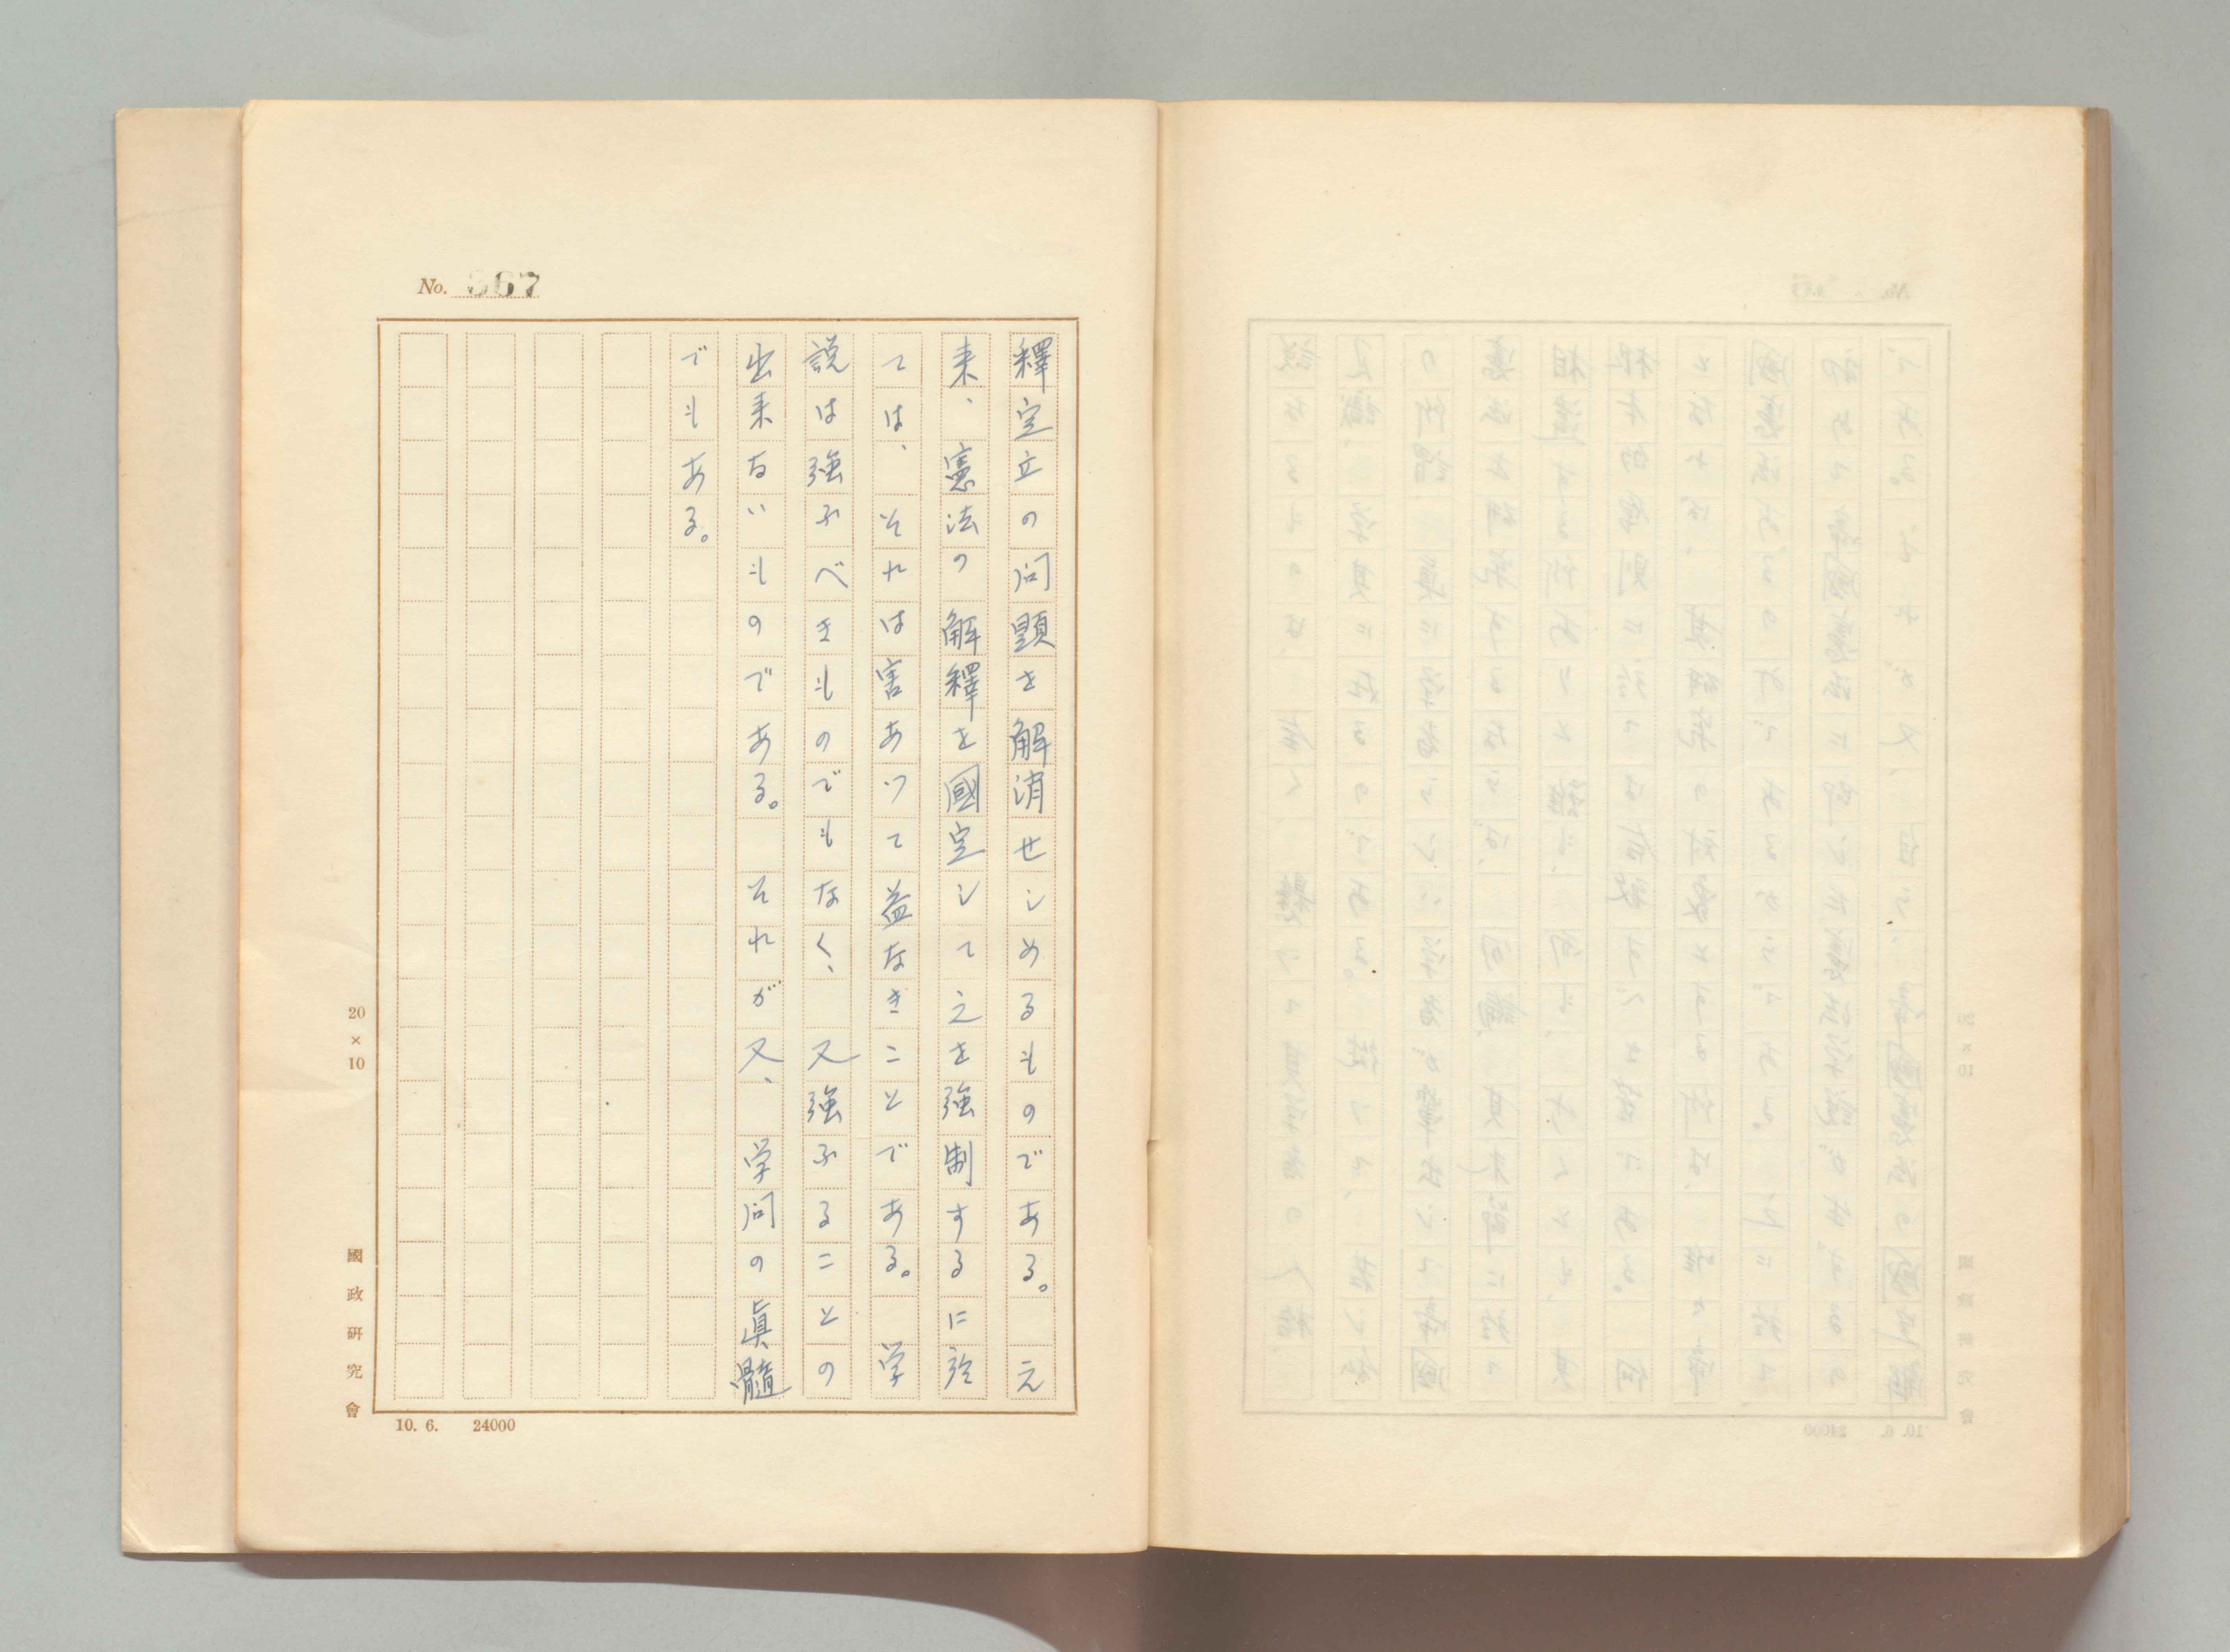 No. 367
釋定立の問題を解消せしめるものである。元
来、憲法の解釋を國定して之を強制するに於
ては、それは害あつて益なきことである。学
説は強ふべきものでもなく、又強ふることの
出来ないものである。それが又、学問の眞髓
でもある。
20×10
國政研究會
10. 6. 24000